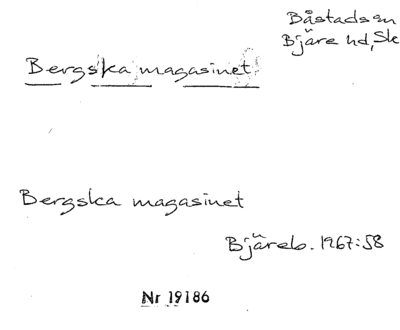 Båstads sn
Bjäre hd, Sk
Bergska magasinet
Bergska magasinet
Bjäreb. 1967:58
Nr 19186